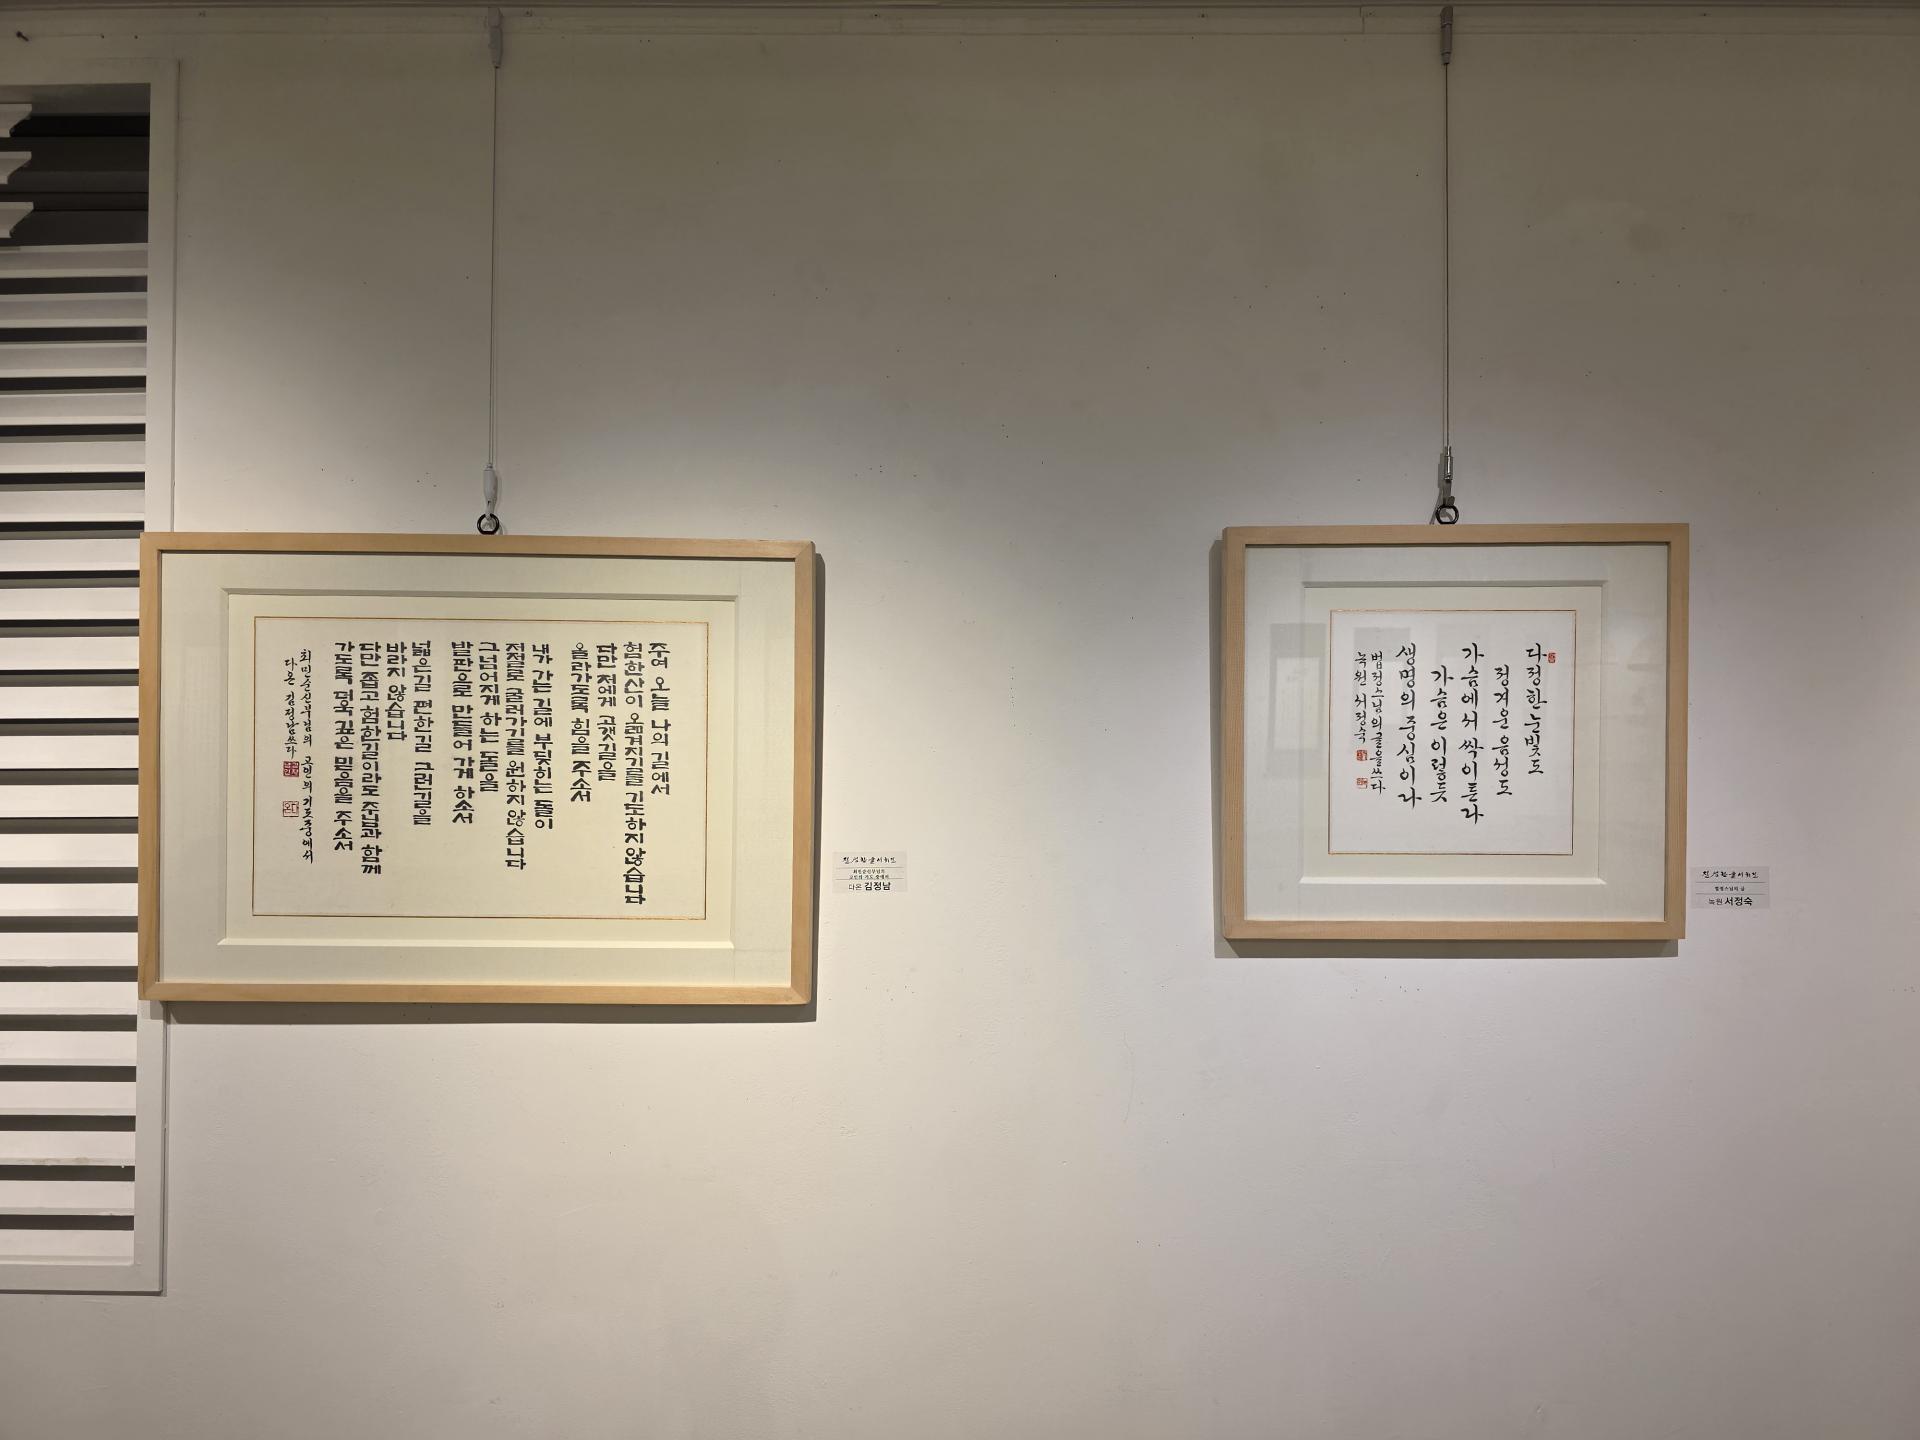 주여 오늘 나의 길에서
험한산이 옮겨지기를 기도하지 않습니다
다만 저에게 고갯길을
올라가도록 힘을 주소서
내가 가는 길에 부딪히는 돌이
저절로 굴러가기를 원하지 않습니다
그 넘어지게 하는 돌을
발판으로 만들어 가게 하소서
넓은길 편한길 그런길을
바라지 않습니다
다만 좁고 험한길이라도 주님과 함께
가도록 더욱 깊은 믿음을 주소서
최민순신부님의 고빈의 기도중에서
다온 김정남쓰다
다온 김정남
다정한 눈빛도
정겨운 음성도
가슴에서 싹이튼라
가슴은 이렇듯
생명의 중심이라
법정스님의 글을 쓰다
녹원 서정숙
법정스님의 글
녹원 서정숙